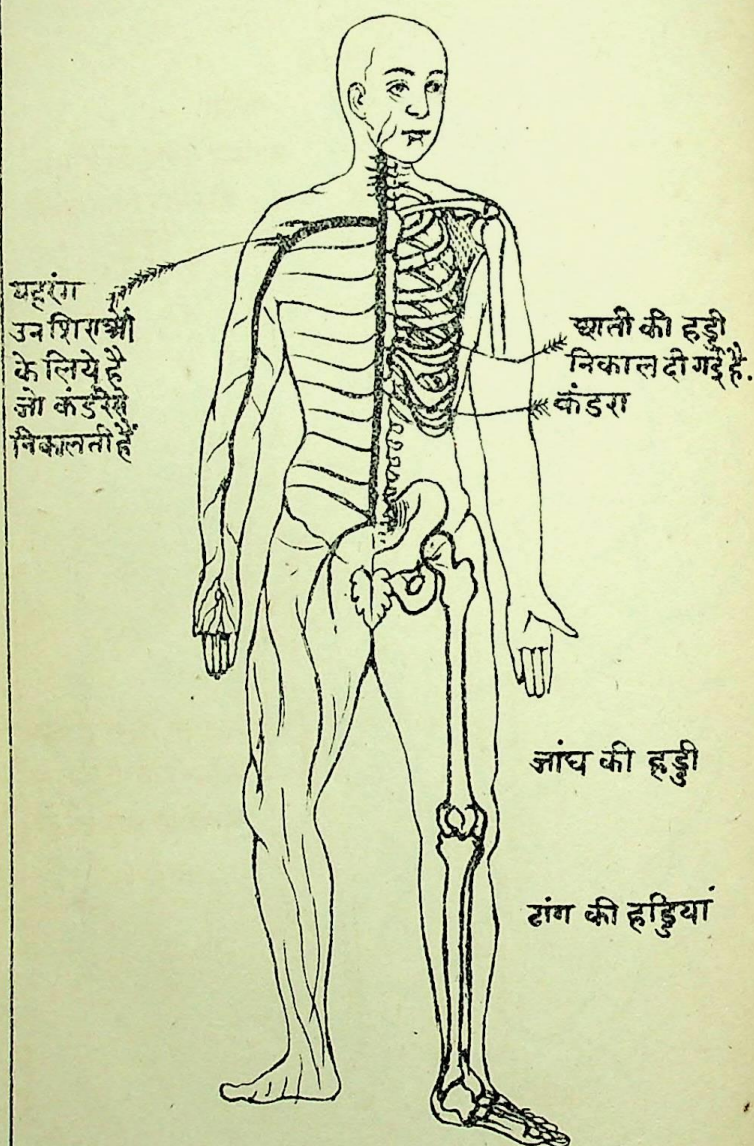 यहरंग
उन शिराओं
के लिये है
जो कंडरेसे
निकालती हैं
छाती की हड्डी
निकाल दी गई है.
कंडरा
जांघ की हड्डी
टांग की हड्डियां